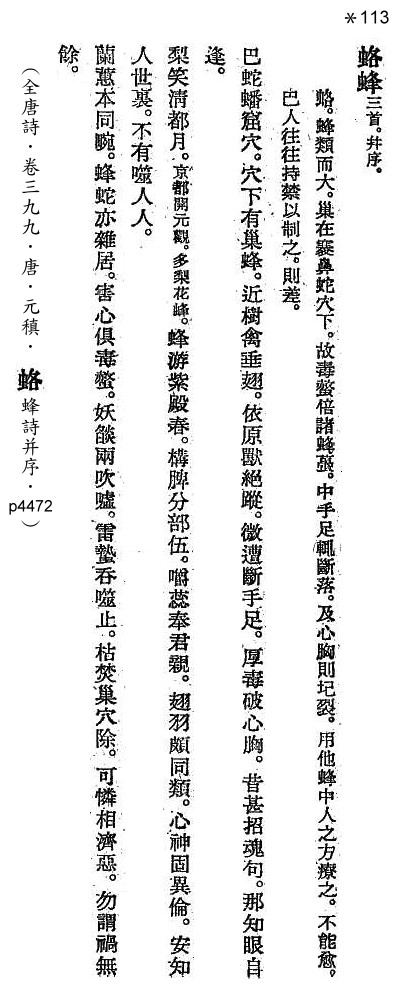 *113
蛒蜂三首。并序。
蛒。蜂類而大。巢在褰鼻蛇穴下。故毒螫倍諸蜂蠆。中手足輒斷落。及心胸則圮裂。用他蜂中人之方療之。不能愈。
巴人往往持禁以制之。則差。
巴蛇蟠窟穴。穴下有巢蜂。近樹禽垂翅。依原獸絕蹤。微遭斷手足。厚毒破心胸。昔甚招魂句。那知眼自
逢。
梨笑清都月。京都開元觀。多梨花蜂。蜂游紫殿春。構脾分部伍。嚼蕊奉君親。翅羽頗同類。心神固異倫。安知
人世裏。不有噬人人。
蘭蕙本同畹。蜂蛇亦雜居。害心俱毒螫。妖燄兩吹噓。雷蟄吞噬止。枯焚巢穴除。可憐相濟惡。勿謂禍無
餘。
（全唐詩．卷三九九．唐．元稹．蛒蜂詩并序．p4472）